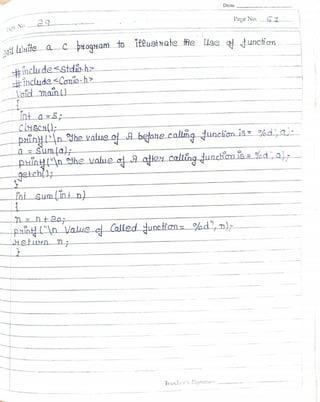 Date
Exp. No. 29
Page No. 61
Write a C program to illustrate the Use of function
#include<stdio.h>
#include<Conio.h>
Void main()
{
int a=5;
clrscr();
printf("\n The value of a before calling function is= %d", a);
a = sum(a);
printf("\n The value of a after calling function is = %d", a);
getch();
}
int sum(int n)
{
n = n+20;
printf("\n Value of Called function= %d", n);
return n;
}
Teacher's Signature